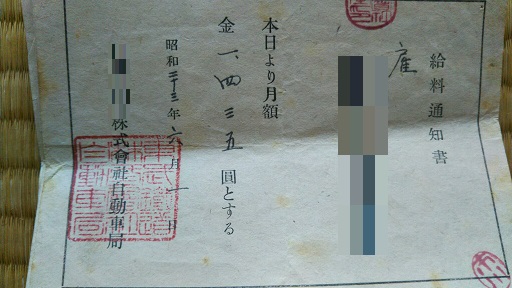 給料通知書
雇
本日より月額
金一、四三五圓とする
昭和二十三年六月一日
株式會社自動車局